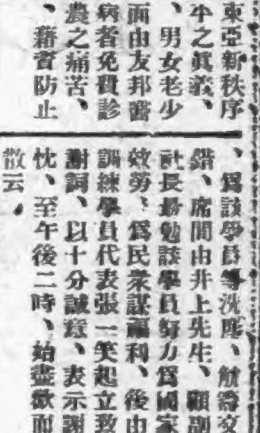 東亞新秩序
平之眞義、
、男女老少
面由友邦醫
病者免費診
農之痛苦、
、藉資防止
、爲該學員等洗塵、觥籌交
錯、席間由井上先生、顧副
社長勗勉該學員努力爲國家
效勞、爲民衆謀福利、後由
訓練學員代表張一笑起立致
謝詞、以十分誠意、表示謝
忱、至午後二時、始盡歡而
散云、